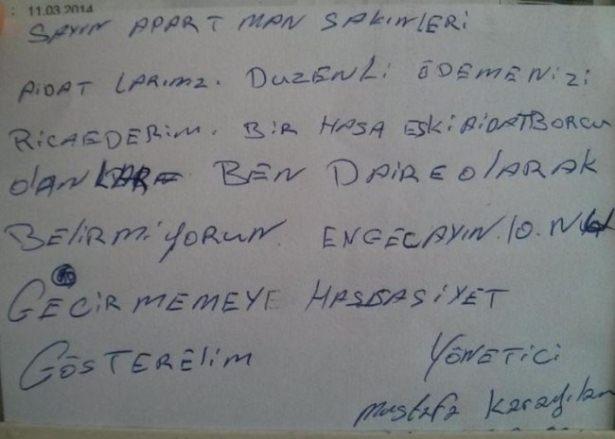 11.03.2014
SAYIN APARTMAN SAKİNLERİ
AİDATLARIMZ. DUZENLİ ÖDEMENİZİ
RİCAEDERİM. BİR HASA ESKİ AİDATBORCU
OLANLAR BEN DAİRE OLARAK
BELİRMİYORUN. ENGEÇAYIN.10.NU
GEÇİRMEMEYE HASSASİYET
GÖSTERELİM YÖNETİCİ
Mustafa Karayılan